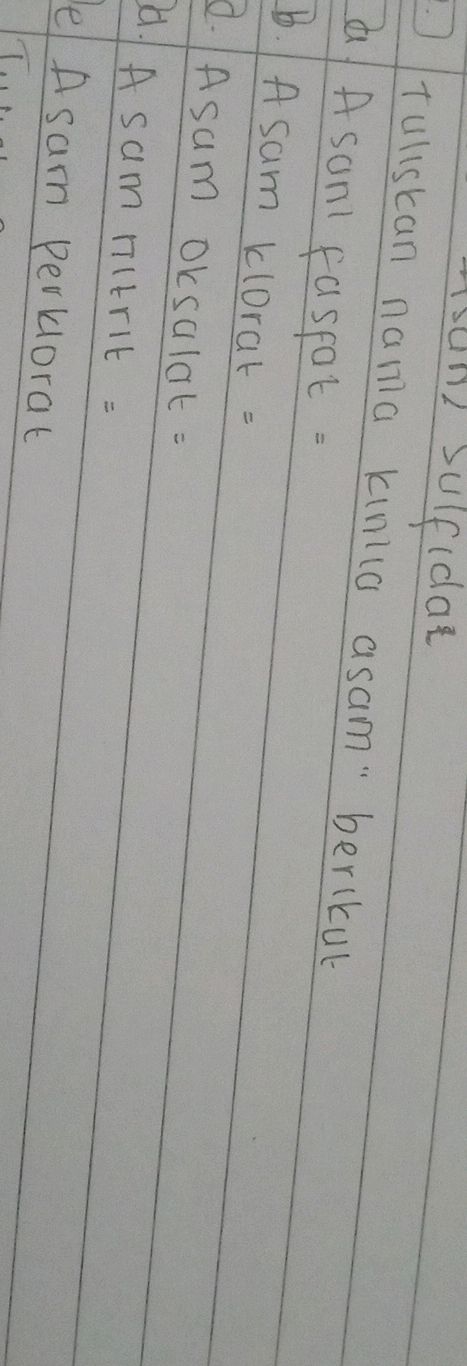 Asam sulfidat
Tuliskan nama kimia asam" berikut
a. Asam fasfat =
b. Asam klorat =
d. Asam oksalat =
d. Asam nitrit =
e Asam perklorat